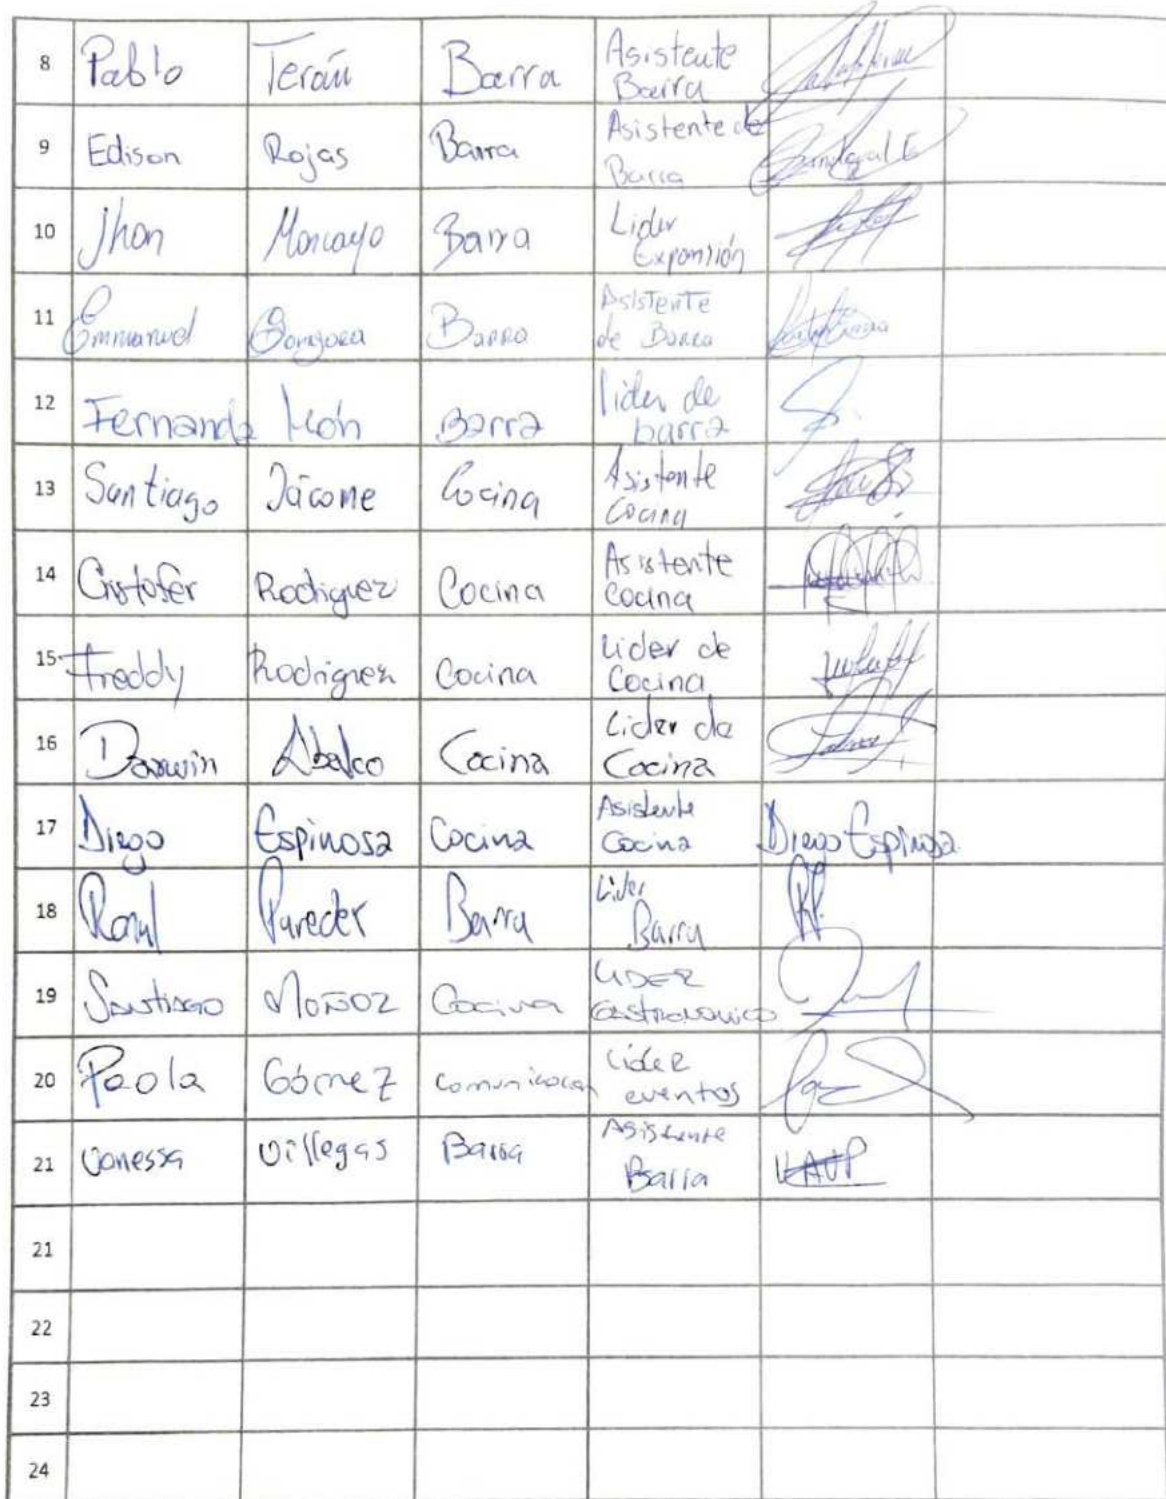 8 Pablo Terán Barra Asistente Barra
9 Edison Rojas Barra Asistente de Barra
10 Jhon Moncayo Barra Lider Expansión
11 Emmanuel Gongora Barra Asistente de Barra
12 Fernanda León Barra lider de barra
13 Santiago Jácome Cocina Asistente Cocina
14 Cristofer Rodriguez Cocina Asistente Cocina
15 Freddy Rodriguez Cocina Lider de Cocina
16 Darwin Abalco Cocina Lider de Cocina
17 Diego Espinosa Cocina Asistente Cocina Diego Espinosa
18 Raul Paredes Barra Lider Barra RP.
19 Santiago Muñoz Cocina LIDER Gastronomico
20 Paola Gómez comunicación Líder eventos
21 Vanessa Villegas Barra Asistente Barra VAVP
21
22
23
24